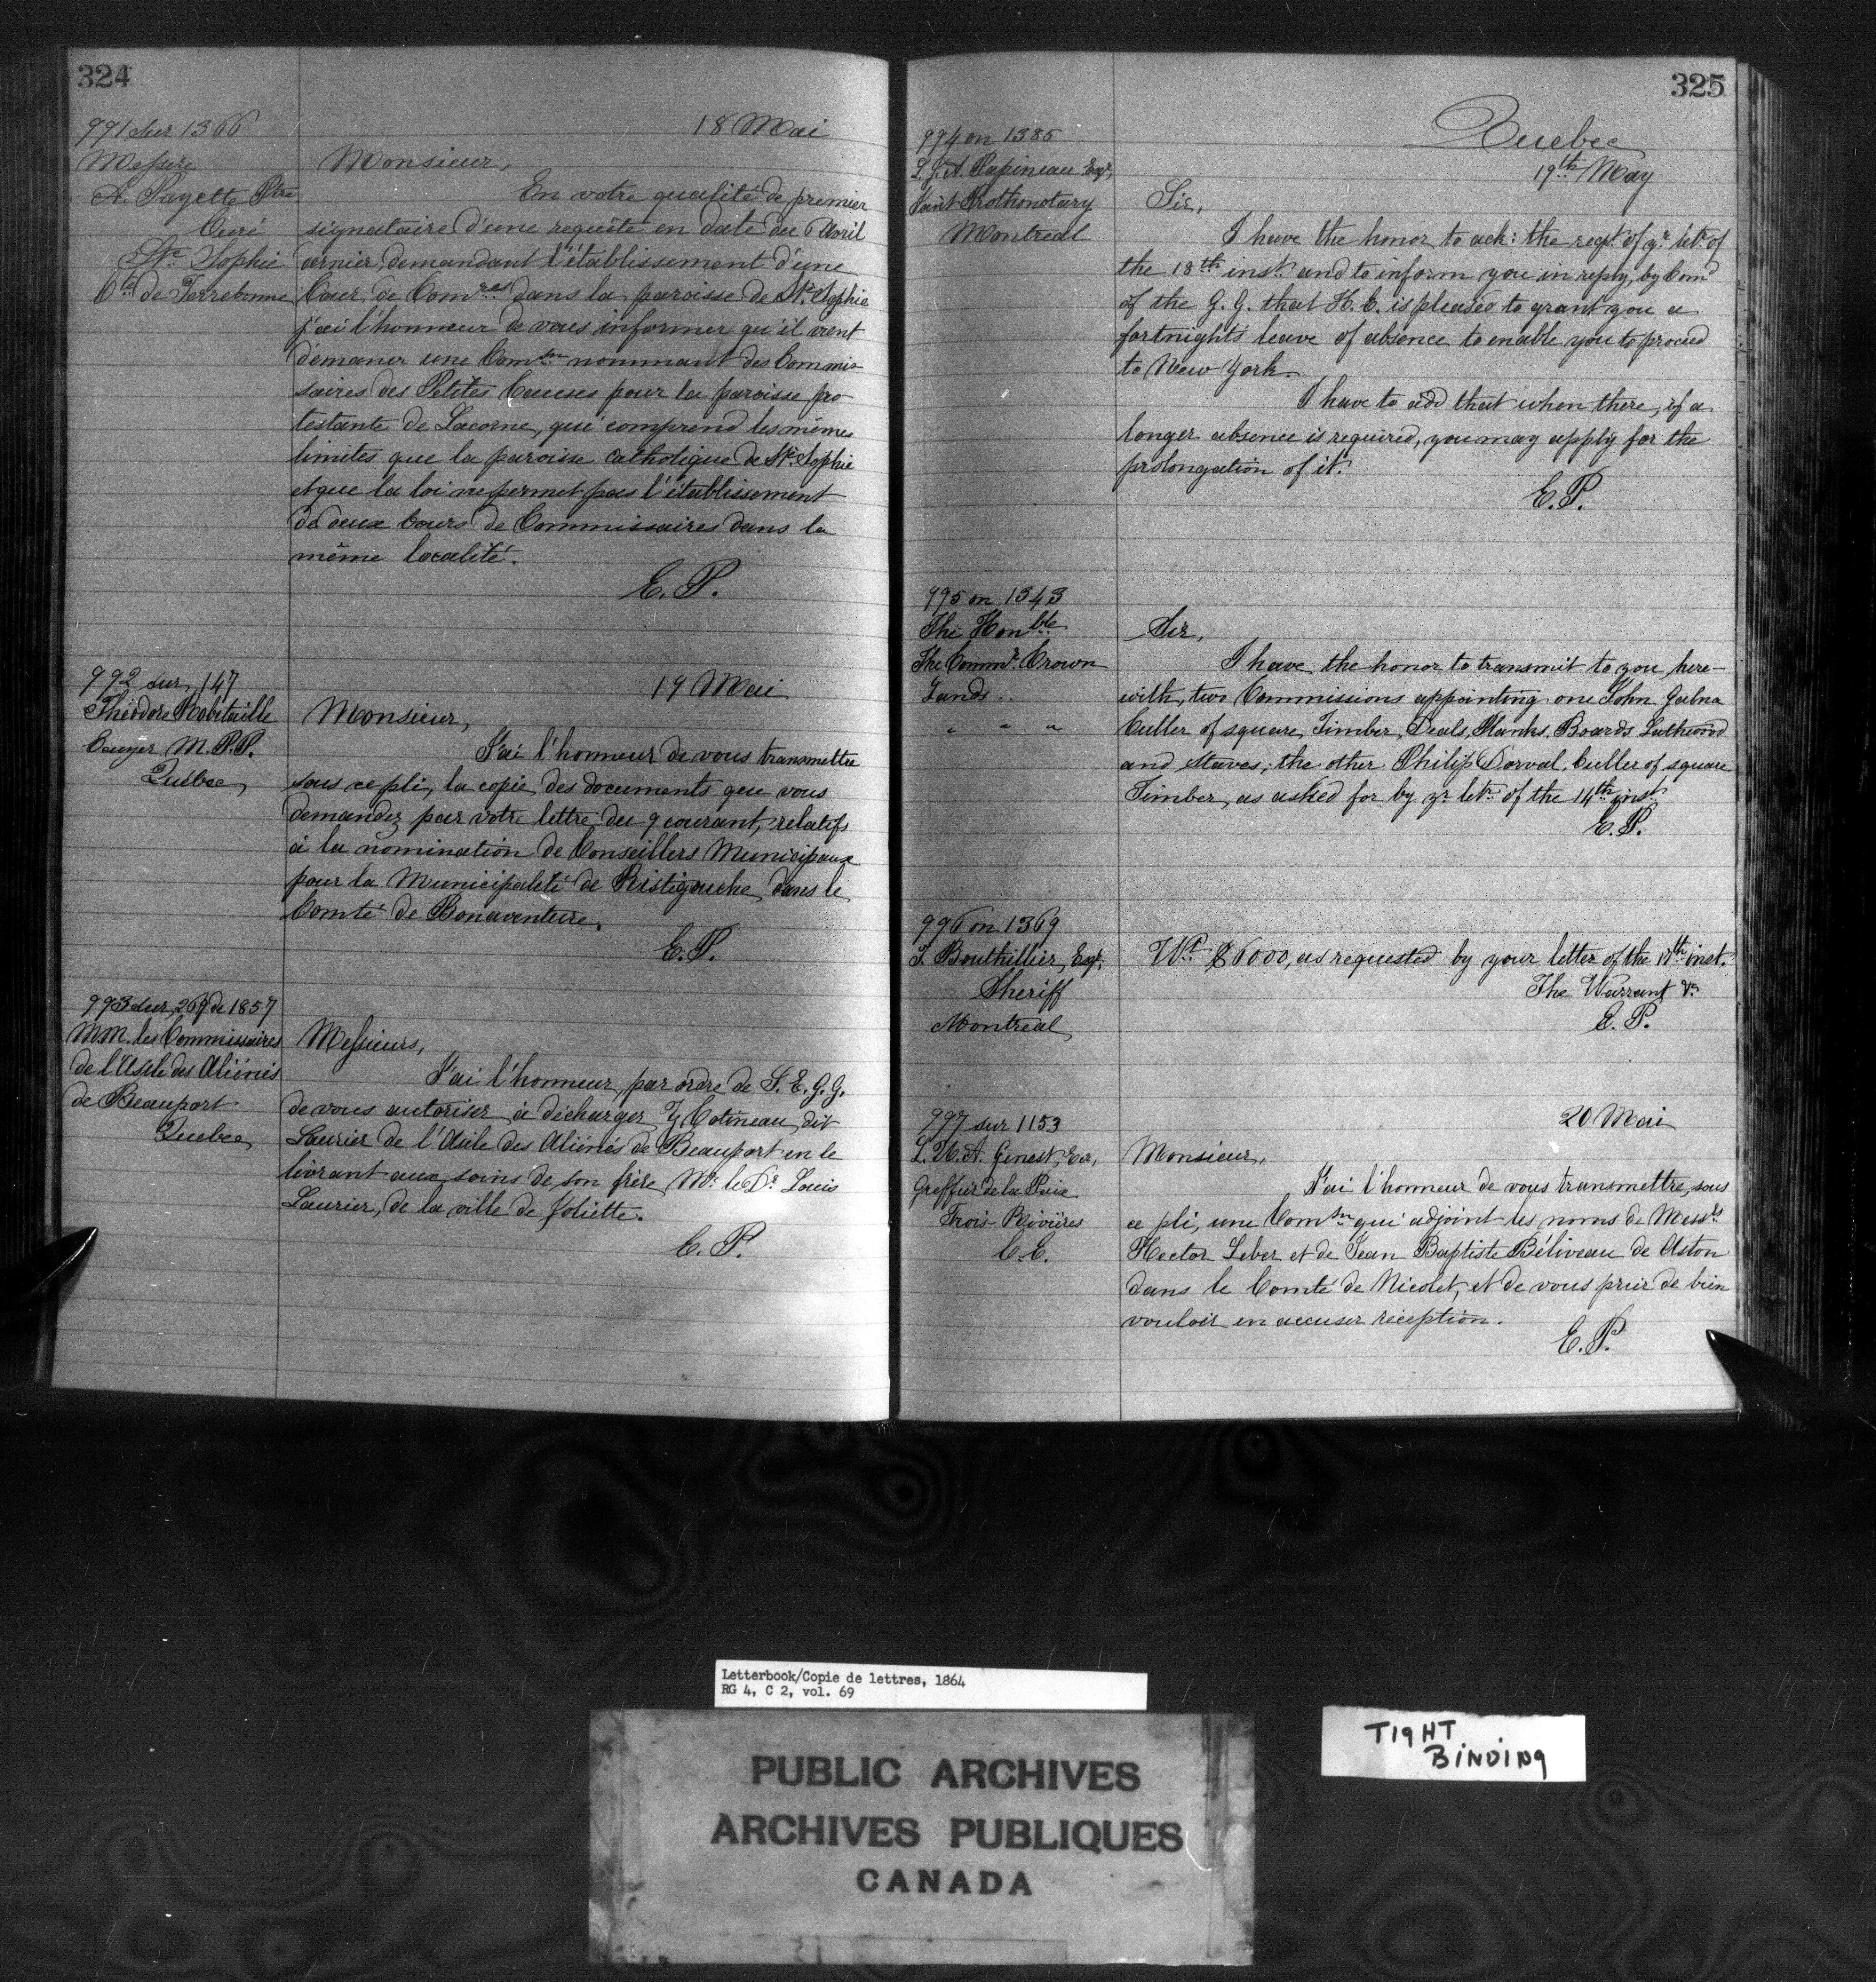 324
991 sur 1366
18 Mai
Messire
A. Payette Ptre
Curé
Ste Sophie
Cté de Terrebonne
Monsieur,
En votre qualité de premier
signataire d'une requête en date du 6 Avril
dernier, demandant l'établissement d'une
Cour de Comres dans la paroisse de Ste Sophie
j'ai l'honneur de vous informer qu'il vient
d'émaner une Comson nommant des Commis-
saires des Petites Causes pour la paroisse pro-
testante de Lacorne, qui comprend les mêmes
limites que la paroisse catholique de Ste Sophie
et que la loi ne permet pas l'établissement
de deux Cours de Commissaires dans la
même localité.
E. P.
992 sur 147
Théodore Robitaille
Ecuyer M.P.P.
Québec
19 Mai
Monsieur,
J'ai l'honneur de vous transmettre
sous ce pli, la copie des documents que vous
demandez par votre lettre du 9 courant, relatifs
à la nomination de Conseillers Municipaux
pour la Municipalité de Ristigouche, dans le
Comté de Bonaventure.
E. P.
993 sur 269 de 1857
MM. les Commissaires
de l'Asile des Aliénés
de Beauport
Quebec
Messieurs,
J'ai l'honneur, par ordre de S. E. G. G.
de vous autoriser à décharger Cotineau dit
Laurier de l'Asile des Aliénés de Beauport en le
livrant aux soins de son frère Mr. le Dr. Louis
Laurier, de la ville de Joliette.
E. P.
325
Quebec
19th May
994 on 1385
L. J. A. Papineau Esqr,
Joint Prothonotary
Montreal
Sir,
I have the honor to ack: the rect of yr letr of
the 18th inst. and to inform you in reply, by Comd
of the G. G. that H. E. is pleased to grant you a
fortnights leave of absence to enable you to proceed
to New York.
I have to add that when there, if a
longer absence is required, you may apply for the
prolongation of it.
E. P.
995 on 1343
The Honble
The Commr. Crown
Lands ..
" " "
Sir,
I have the honor to transmit to you here-
with, two Commissions appointing one John
Culler of square, Timber, Deals, Planks, Boards Lathwood
and Staves; the other Philip Dorval, Culler of square
Timber, as asked for by yr letr of the 14th inst.
E. P.
996 on 1369
T. Bouthillier, Esqr,
Sheriff
Montreal
Wt $6000, as requested by your letter of the 17th inst.
The Warrant &c
E. P.
997 sur 1153
L. U. A. Genest, Ecr,
Greffier de la Paix
Trois-Rivières
C. E.
20 Mai
Monsieur,
J'ai l'honneur de vous transmettre, sous
ce pli, une Comson qui adjoint les noms de Messrs
Hector Leber et de Jean Baptiste Béliveau de Aston
dans le Comté de Nicolet, et de vous prier de bien
vouloir en accuser réception.
E. P.
Letterbook/Copie de lettres, 1864
RG 4, C 2, vol. 69
PUBLIC ARCHIVES
ARCHIVES PUBLIQUES
CANADA
TIGHT
BINDING